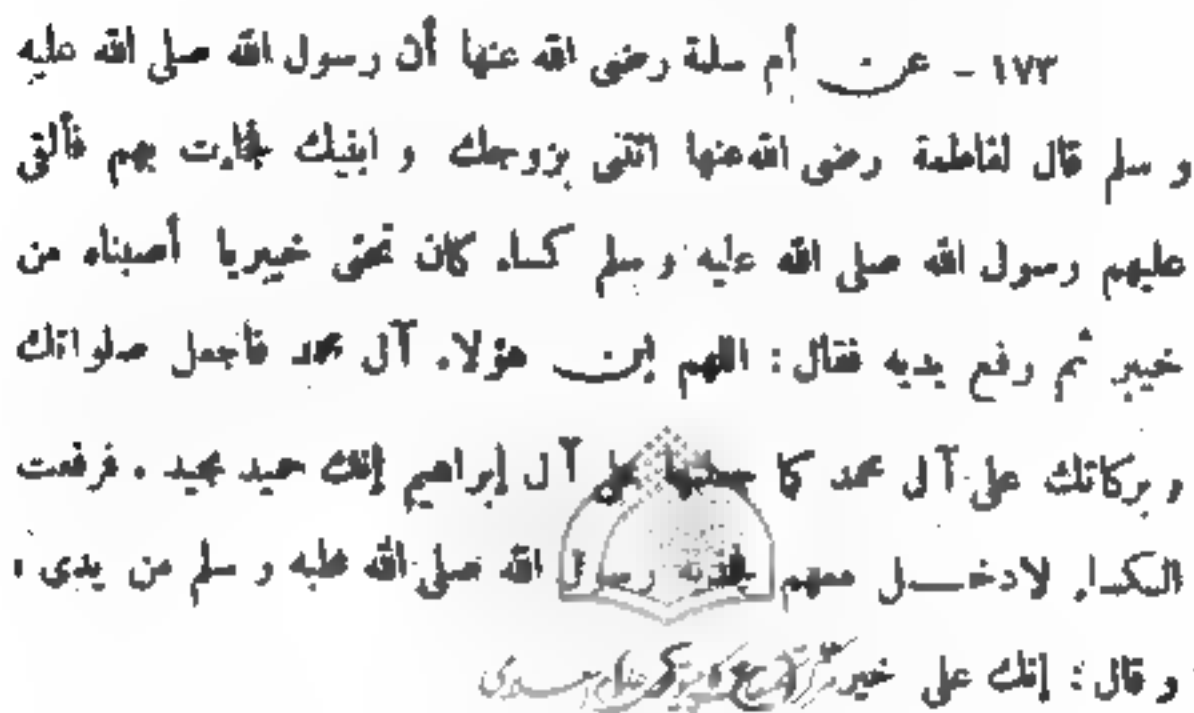 ١٧٣ - عن أم سلمة رضى الله عنها أن رسول الله صلى الله عليه
و سلم قال لفاطمة رضى الله عنها ائتنى بزوجك و ابنيك جاءت بهم فألقى
عليهم رسول الله صلى الله عليه و سلم كساء كان تحتى خيبريا أصبناه من
خيبر ثم رفع يديه فقال : اللهم إن هؤلاء آل محمد فاجعل صلواتك
و بركاتك على آل محمد كما جعلتها على آل إبراهيم إنك حميد مجيد . فرفعت
الكساء لادخل معهم فجذبه رسول الله صلى الله عليه و سلم من يدى ،
و قال : إنك على خير